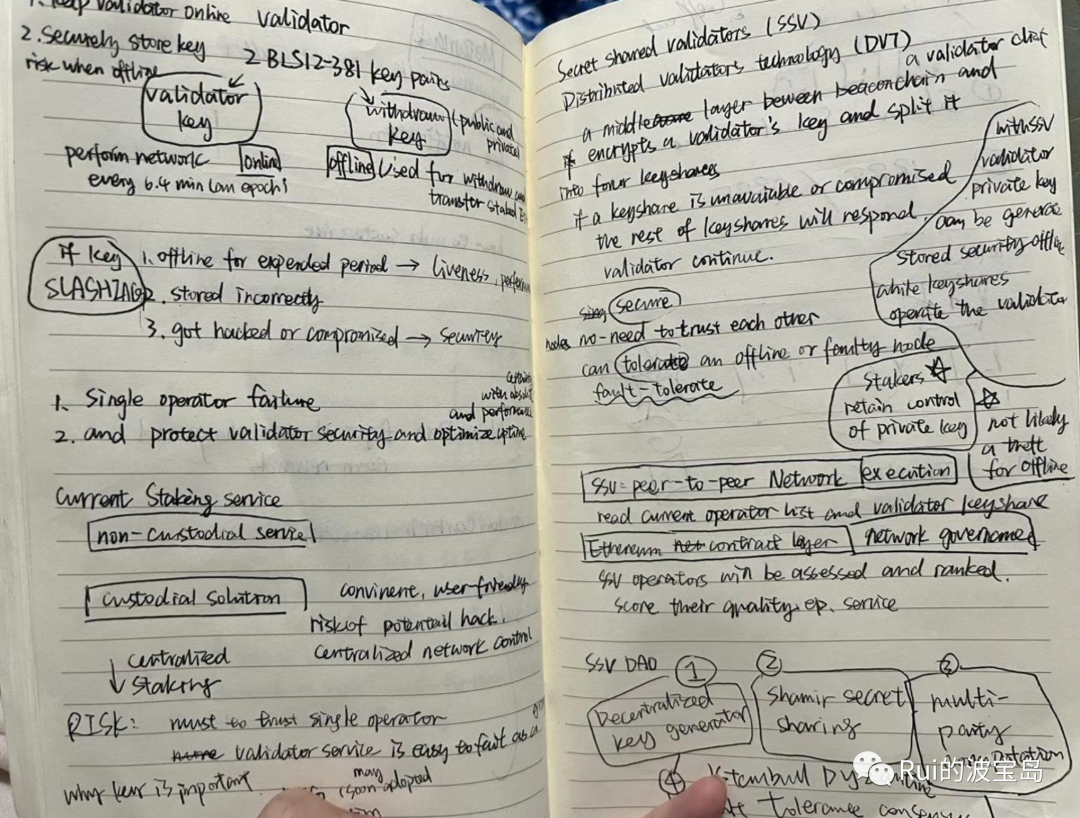 1. keep validator online validator
2. Securely store key
risk when offline
2 BLS12-381 key pairs
validator
key
withdraw
key
(public and
private)
perform network online
every 6.4 min (an epoch)
offline Used for withdraw and
transfer staked
if key
SLASHING
1. offline for expended period → liveness,
2. stored incorrectly
3. got hacked or compromised → security
1. Single operator failure
2. and protect validator security and optimize uptime
with
and performance
Current Staking service
non-custodial service
custodial solution
convinent, user friendly
risk of potentail hack.
centralized network control
centralized
↓ staking
RISK: must to trust single operator
validator service is easy to fast as a
why key is important
may
soon adopted
Secret shared validators (SSV)
Distributed validators technology (DVT)
a validator
a middle layer beween beaconchain and
encrypts a validator's key and split it
into four keyshares
if a keyshare is unavaiable or compromised
the rest of keyshares will respond.
validator continue.
with SSV
validator
private key
can be generate
stored security offline
while keyshares
operate the validator
secure
nodes no-need to trust each other
can tolerate an offline or faulty node
fault-tolerate
Stakers ☆
retain control
of private key
☆
not likely
a theft
for offline
SSV = peer-to-peer Network execution
read current operator list and validator keyshare
Ethereum contract layer network governance
SSV operators will be assessed and ranked.
score their quality. service
SSV DAO
①
Decentralized
key generator
②
Shamir secret
sharing
③
multi-
party
④
tolerance
Rui的波宝岛